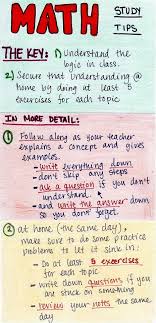 MATH
STUDY
TIPS
THE KEY: 1) Understand the
logic in class.
2) Secure that understanding @
home by doing at least 5
exercises for each topic
IN MORE DETAIL:
1 Follow along as your teacher
explains a concept and gives
examples.
- write everything down
- don't skip any steps
- ask a question if you don't
understand
- and write the answer down
so you don't forget.
2 at home (the same day),
make sure to do some practice
problems to let it sink in:
- Do at least 5 exercises
for each topic
- write down questions if you
are stuck on something
- review your notes the same
day